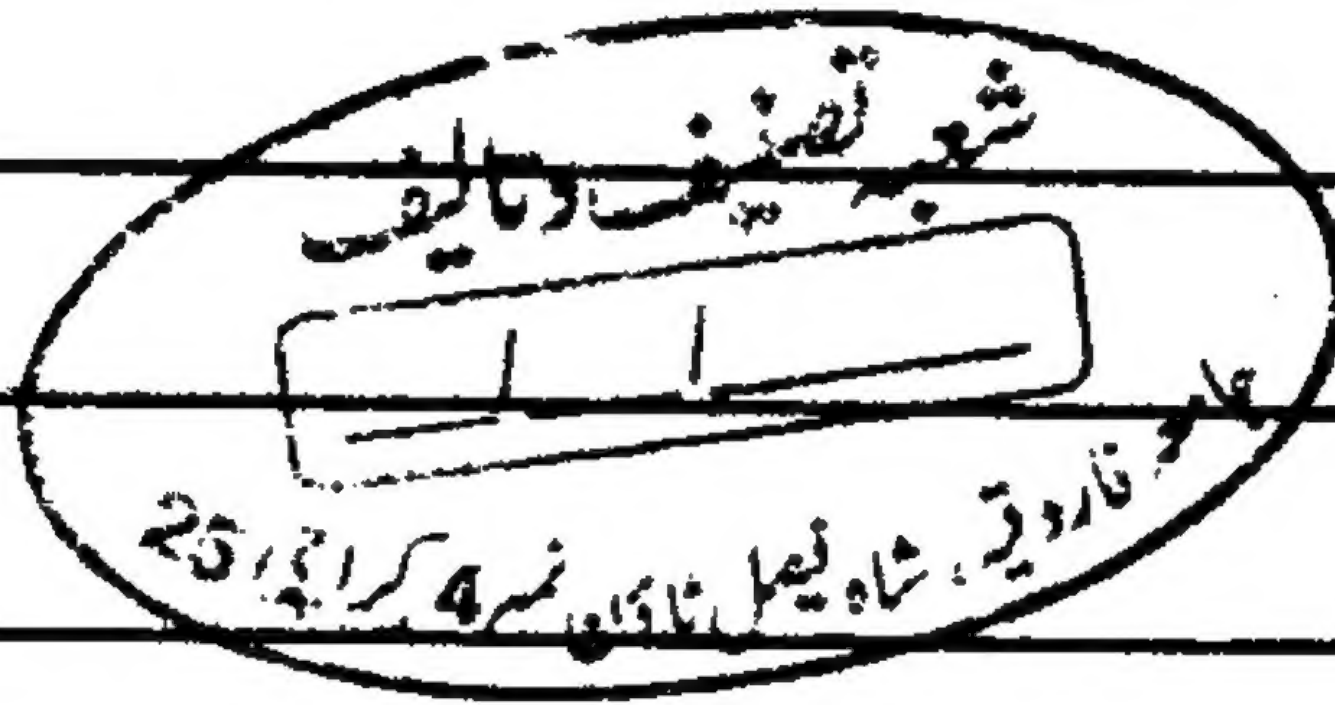 شعبہ تصنیف وتالیف
جامعہ فاروقیہ، شاہ فیصل ٹاؤن نمبر 4 کراچی 25